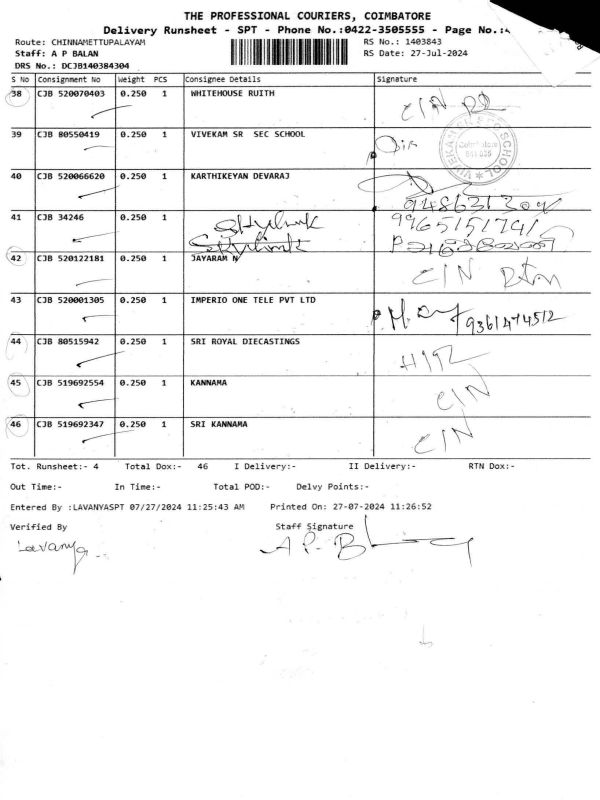 THE PROFESSIONAL COURIERS, COIMBATORE
Delivery Runsheet - SPT - Phone No.:0422-3505555 - Page No.:
Route: CHINNAMETTUPALAYAM RS No.: 1403843
Staff: A P BALAN RS Date: 27-Jul-2024
DRS No.: DCJB140384304
S No Consignment No Weight PCS Consignee Details Signature
38 CJB 520070403 0.250 1 WHITEHOUSE RUITH CIN
39 CJB 80550419 0.250 1 VIVEKAM SR SEC SCHOOL
Coimbatore
40 CJB 520066620 0.250 1 KARTHIKEYAN DEVARAJ
41 CJB 34246 0.250 1 Skylink 9965151791
Skylink
42 CJB 520122181 0.250 1 JAYARAM N CIN Rtn
43 CJB 520001305 0.250 1 IMPERIO ONE TELE PVT LTD 9361474512
44 CJB 80515942 0.250 1 SRI ROYAL DIECASTINGS
45 CJB 519692554 0.250 1 KANNAMA CIN
46 CJB 519692347 0.250 1 SRI KANNAMA CIN
Tot. Runsheet:- 4 Total Dox:- 46 I Delivery:- II Delivery:- RTN Dox:-
Out Time:- In Time:- Total POD:- Delvy Points:-
Entered By :LAVANYASPT 07/27/2024 11:25:43 AM Printed On: 27-07-2024 11:26:52
Verified By Staff Signature
Lavanya A P. B